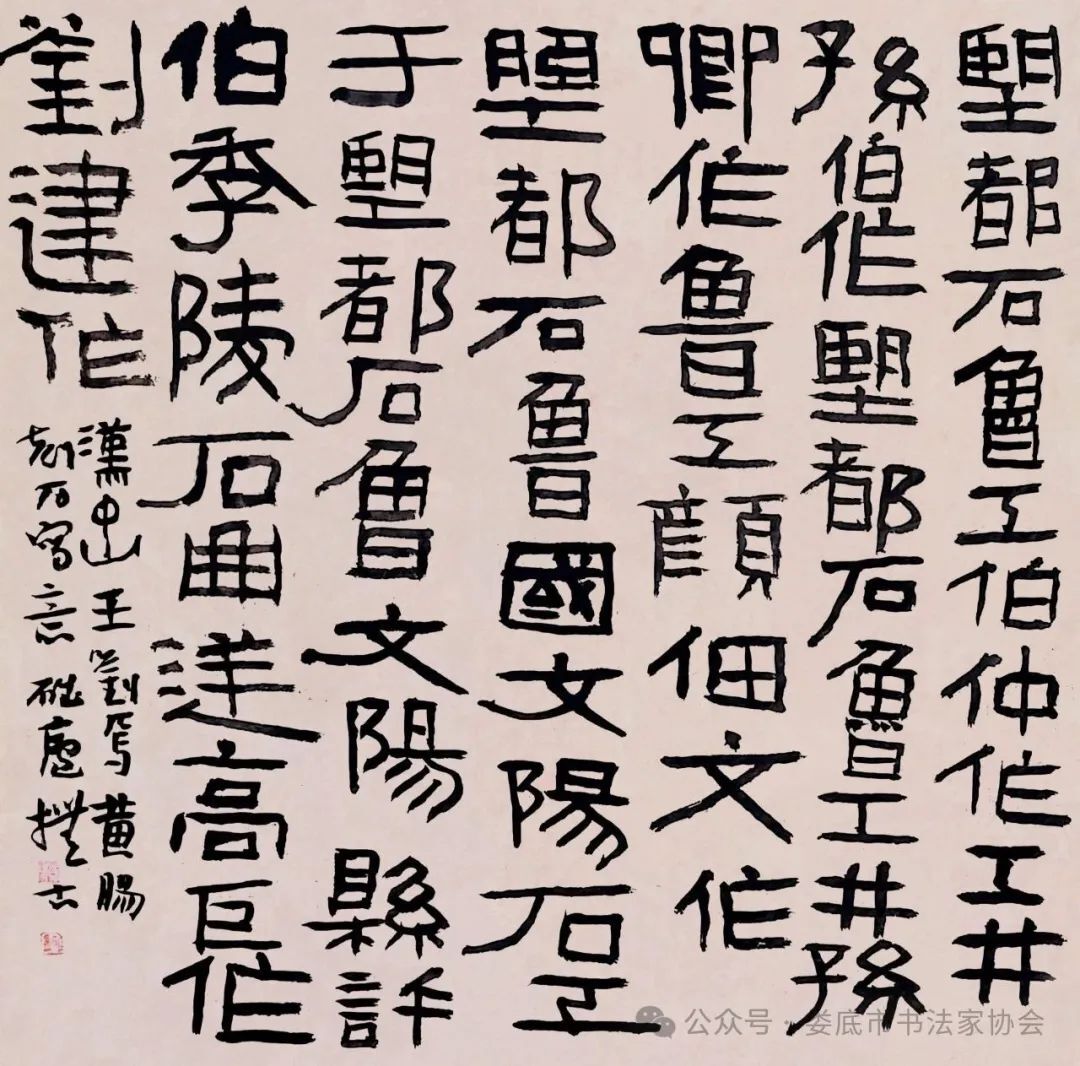 朢都石魯工伯仲作工井
孫伯作朢都石魯工井孫
卿作魯工顏佃文作
朢都石魯國文陽石工
于朢都石魯文陽縣許
伯季陵石曲逆高巨作
劉建作
漢中山王劉焉黃腸
刻石寫意廬
公众号·娄底市书法家协会